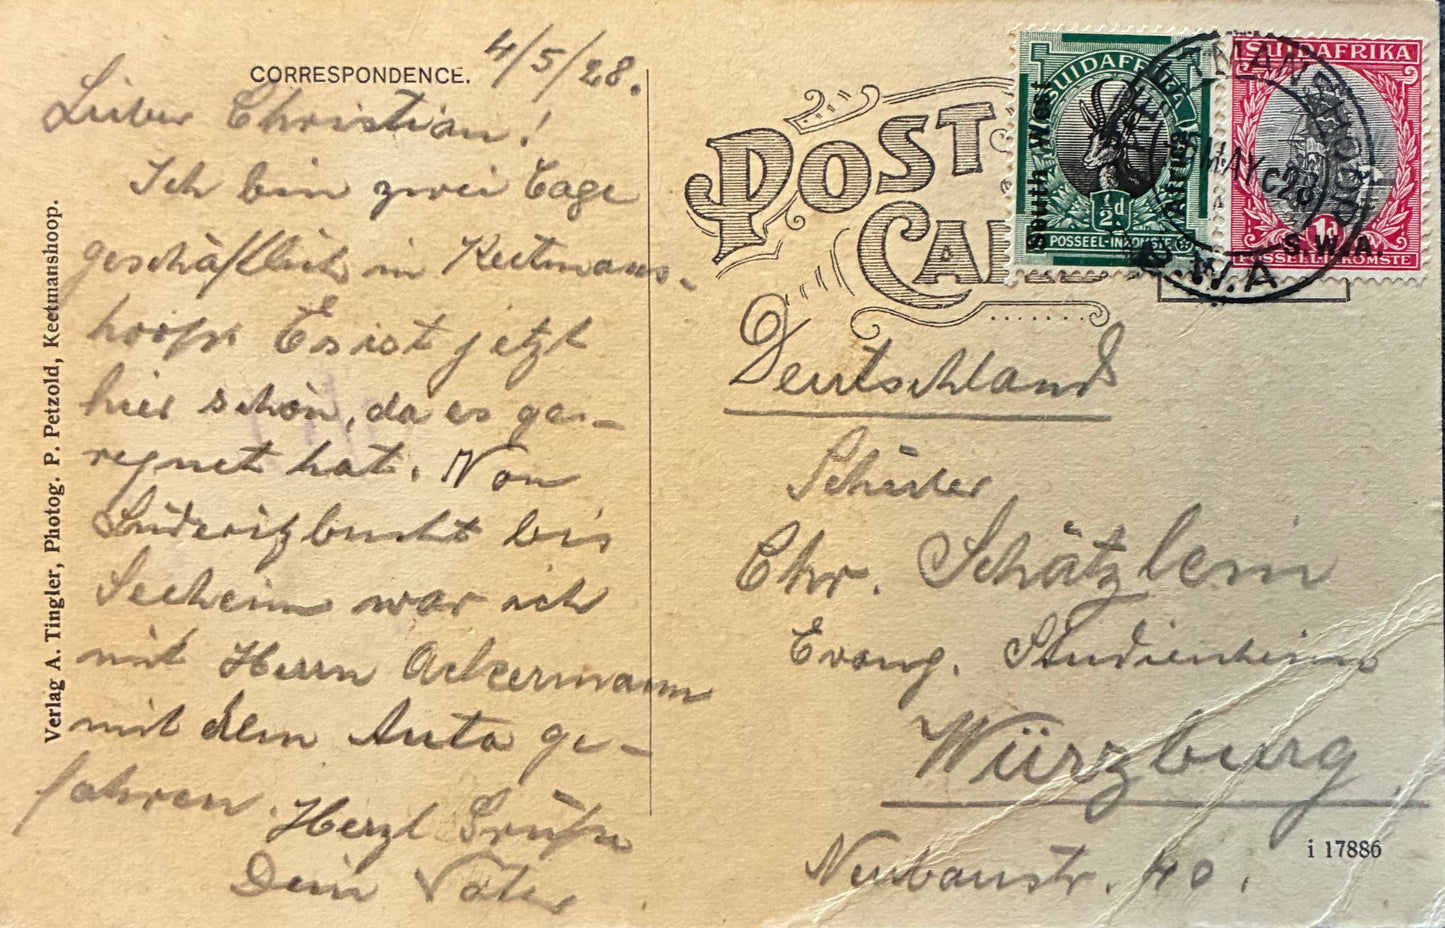 CORRESPONDENCE.
4/5/28.
Lieber Christian!
Ich bin zwei Tage
geschäftlich in Keetmans-
hoop. Es ist jetzt
hier schön, da es ge-
regnet hat. Von
Lüderitzbucht bis
Seeheim war ich
mit Herrn Ackermann
mit dem Auto ge-
fahren. Herzl. Grüße
Dein Vater
Verlag A. Tingler, Photog. P. Petzold, Keetmanshoop.
POST
CA
SUIDAFRIKA
South West
Africa
½d
POSSEEL-INKOMSTE
SUIDAFRIKA
1d
S.W.A.
POSSEEL-INKOMSTE
MAY 28
S.W.A
Deutschland
Schüler
Chr. Schätzlein
Evang. Studienheim
Würzburg
Neubaustr. 40.
i 17886